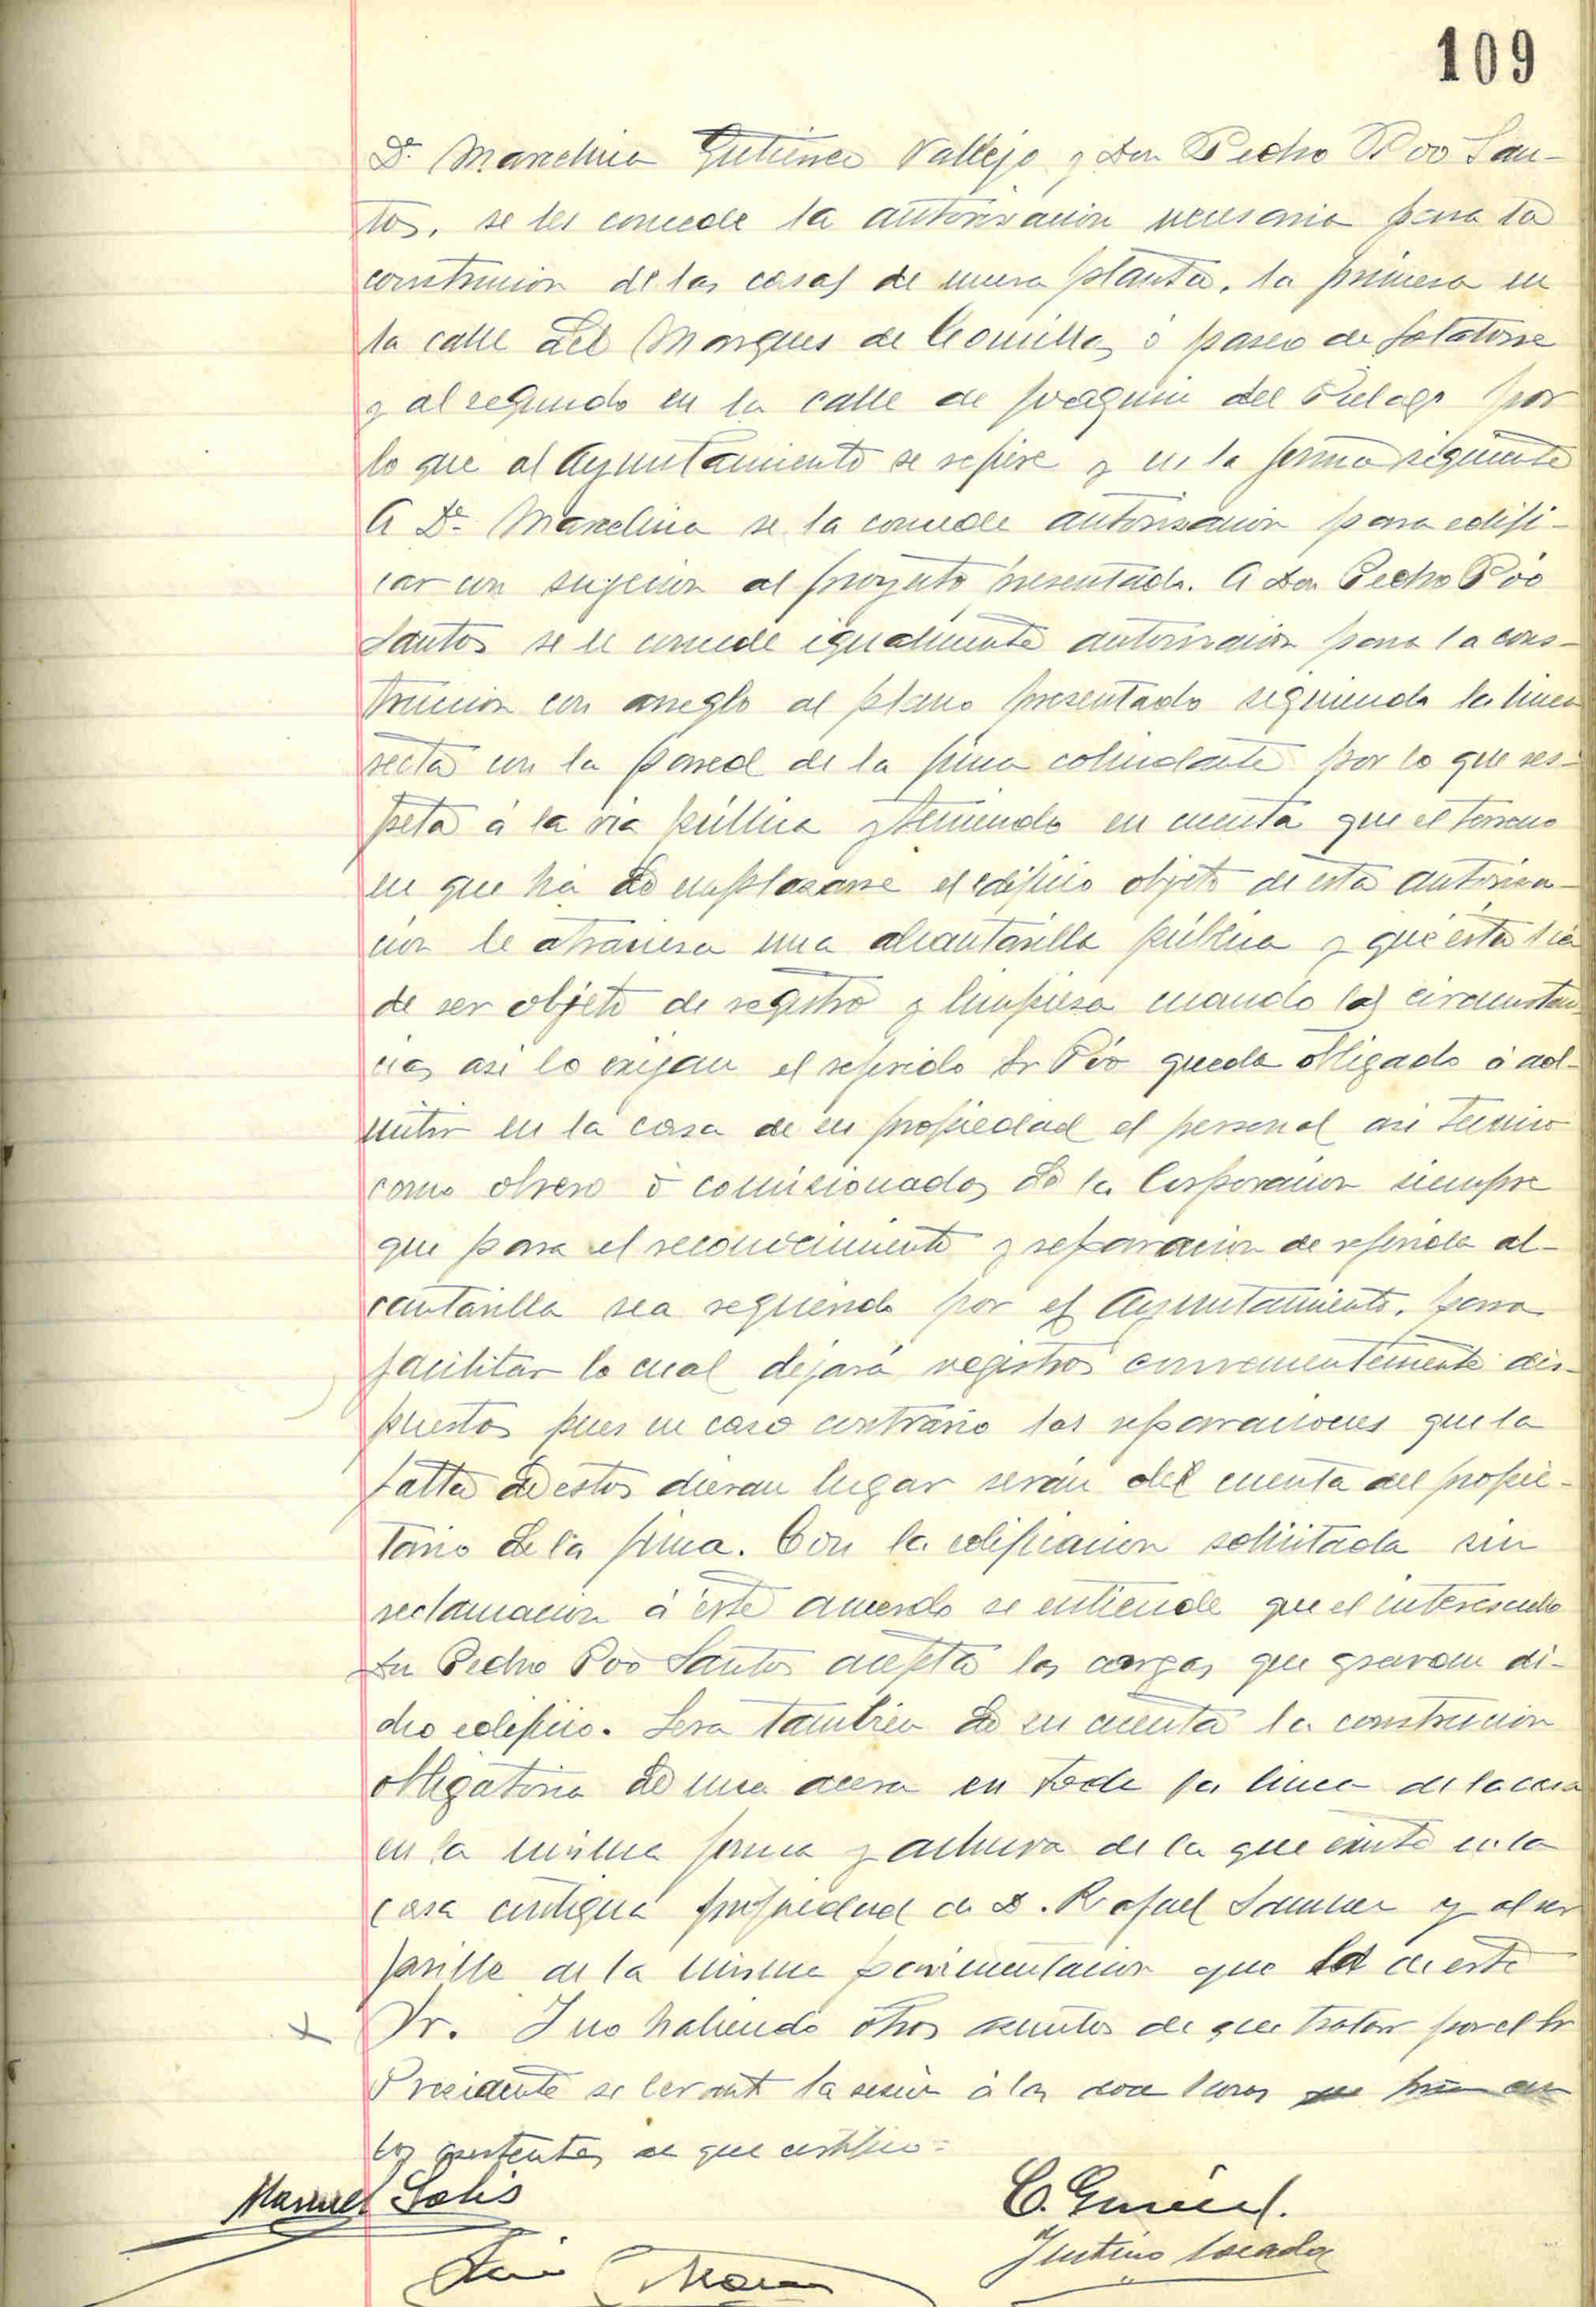 109
Dª Marcelina Gutierrez Vallejo y Don Pedro Poo San-
tos, se les concede la autorisacion necesaria para la
construcion de las casas de nueva planta, la primera en
la calle del Marques de Comillas ó paseo de Solatorre
y al segundo en la calle de Joaquin del Pielago por
lo que al Ayuntamiento se refiere y en la forma siguiente
A Dª Marcelina se la concede autorisacion para edifi-
car con sujecion al proyecto presentado. A Don Pedro Poo
Santos se le concede igualmente autorisacion para la cons-
trucion con arreglo al plano presentado siguiendo la linea
recta con la pared de la finca colindante por lo que res-
peta á la via pública y teniendo en cuenta que el terreno
en que ha de emplasarse el edificio objeto de esta autorisa-
cion le atraviesa una alcantarilla pública y que esta ha
de ser objeto de registro y limpiesa cuando las circunstan
cias asi lo exijan el referido Sr Poo queda obligado á ad-
mitir en la casa de su propiedad el personal asi tecnico
como obrero ó comisionados de la Corporacion siempre
que para el reconocimiento y reparacion de referida al-
cantarilla sea requerido por el Ayuntamiento, para
facilitar lo cual dejará registros convenientemente dis-
puestos pues en caso contrario las reparaciones que la
falta de estos dieran lugar serán del cuenta del propie-
tario de la finca. Con la edificacion solicitada sin
reclamacion á este acuerdo se entiende que el interesado
Dn Pedro Poo Santos acepta las cargas que gravan di-
cho edificio. Sera tambien de su cuenta la construcion
obligatoria de una acera en toda la linea de la casa
en la misma forma y anchura de la que existe en la
casa antigua propiedad de D. Rafael y al ser
posible de la misma pavimentacion que la de este
Sr. Y no habiendo otros asuntos de que tratar por el Sr
Presidente se levantó la sesion á las doce horas
los asistentes de que certifico=
Manuel Solis
C. Gumiel.
Justino Locadio